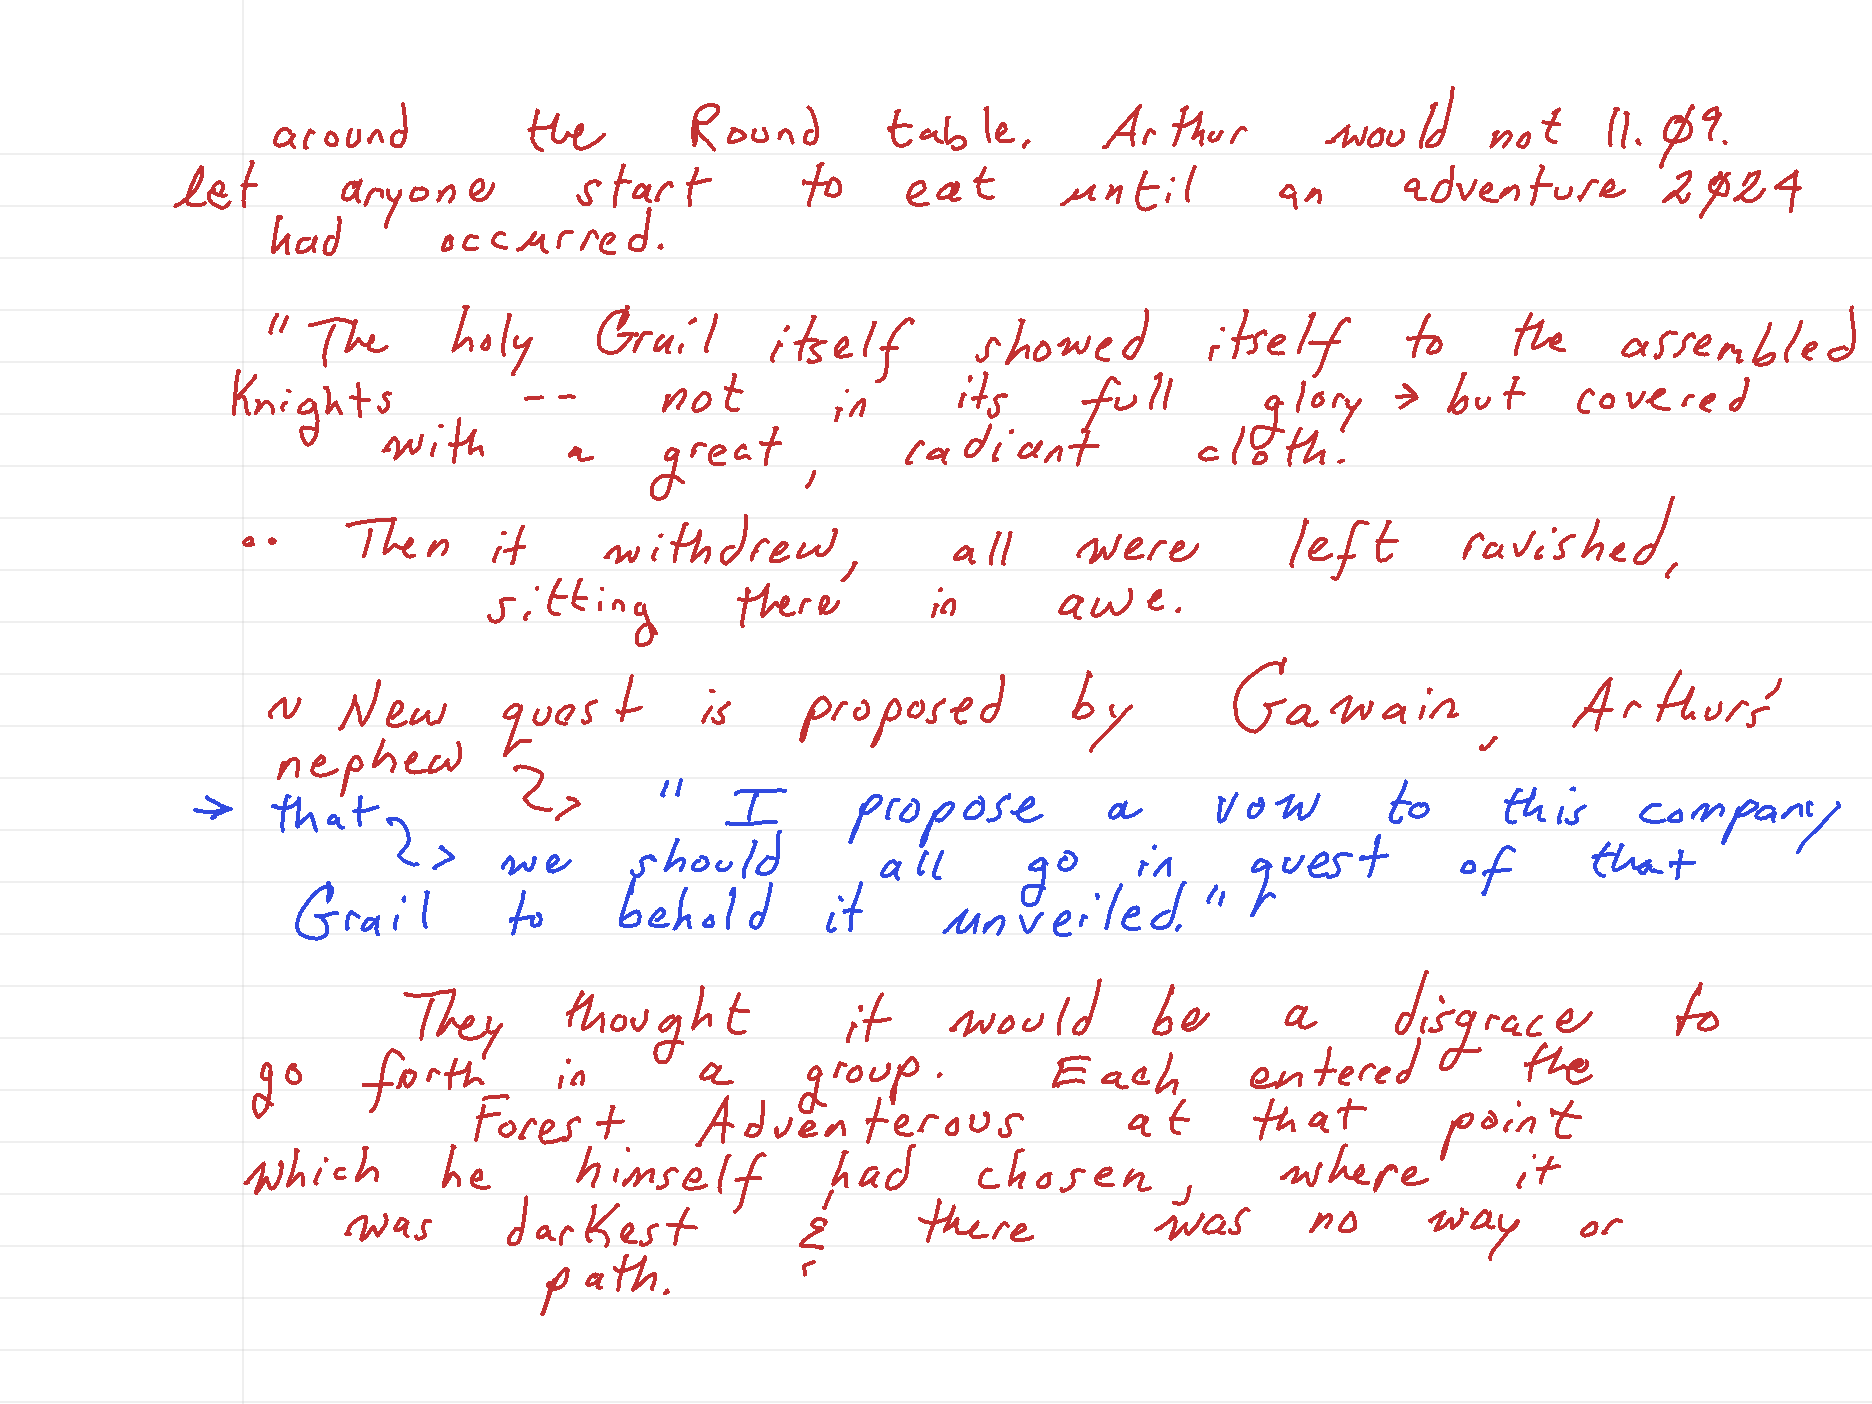 around the Round table. Arthur would not 11.Ø9.
let anyone start to eat until an adventure 2Ø24
had occurred.
"The holy Grail itself showed itself to the assembled
Knights -- not in its full glory → but covered
with a great, radiant cloth.
.. Then it withdrew, all were left ravished,
sitting there in awe.
~ New quest is proposed by Gawain, Arthurs'
nephew
→ that → "I propose a vow to this company
→ we should all go in quest of that
Grail to behold it unveiled."
They thought it would be a disgrace to
go forth in a group. Each entered the
Forest Adventerous at that point
which he himself had chosen, where it
was darkest & there was no way or
path.